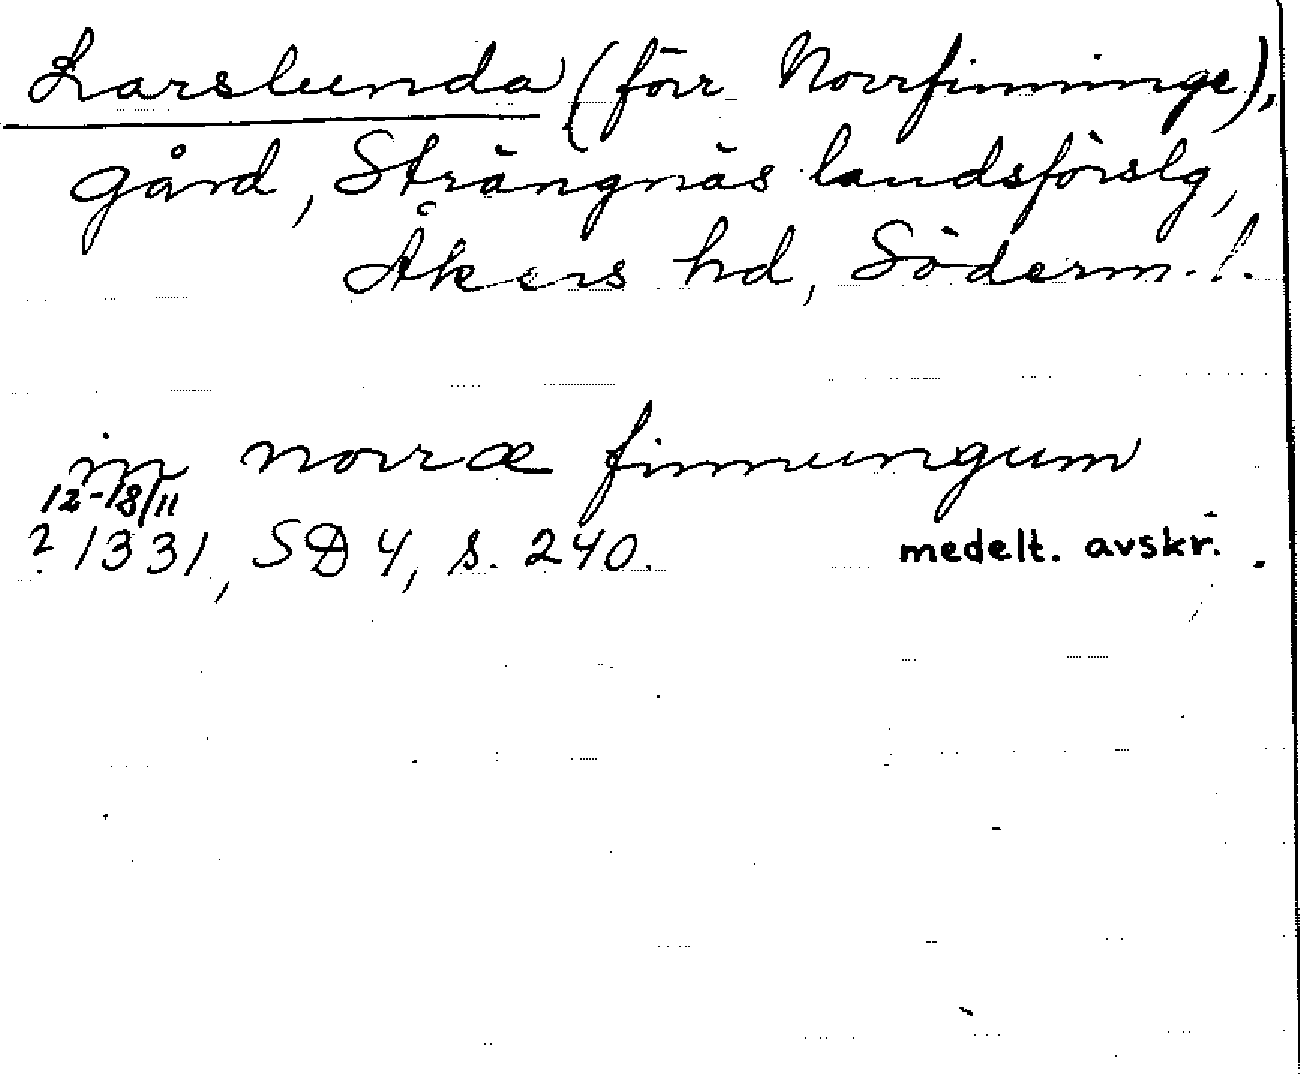 Larslunda (förr Norrfinninge),
gård, Strängnäs landsförslg,
Åkers hd, Söderm. l.
in norræ finnungum
12-18/11
? 1331, SD 4, s. 240. medelt. avskr.